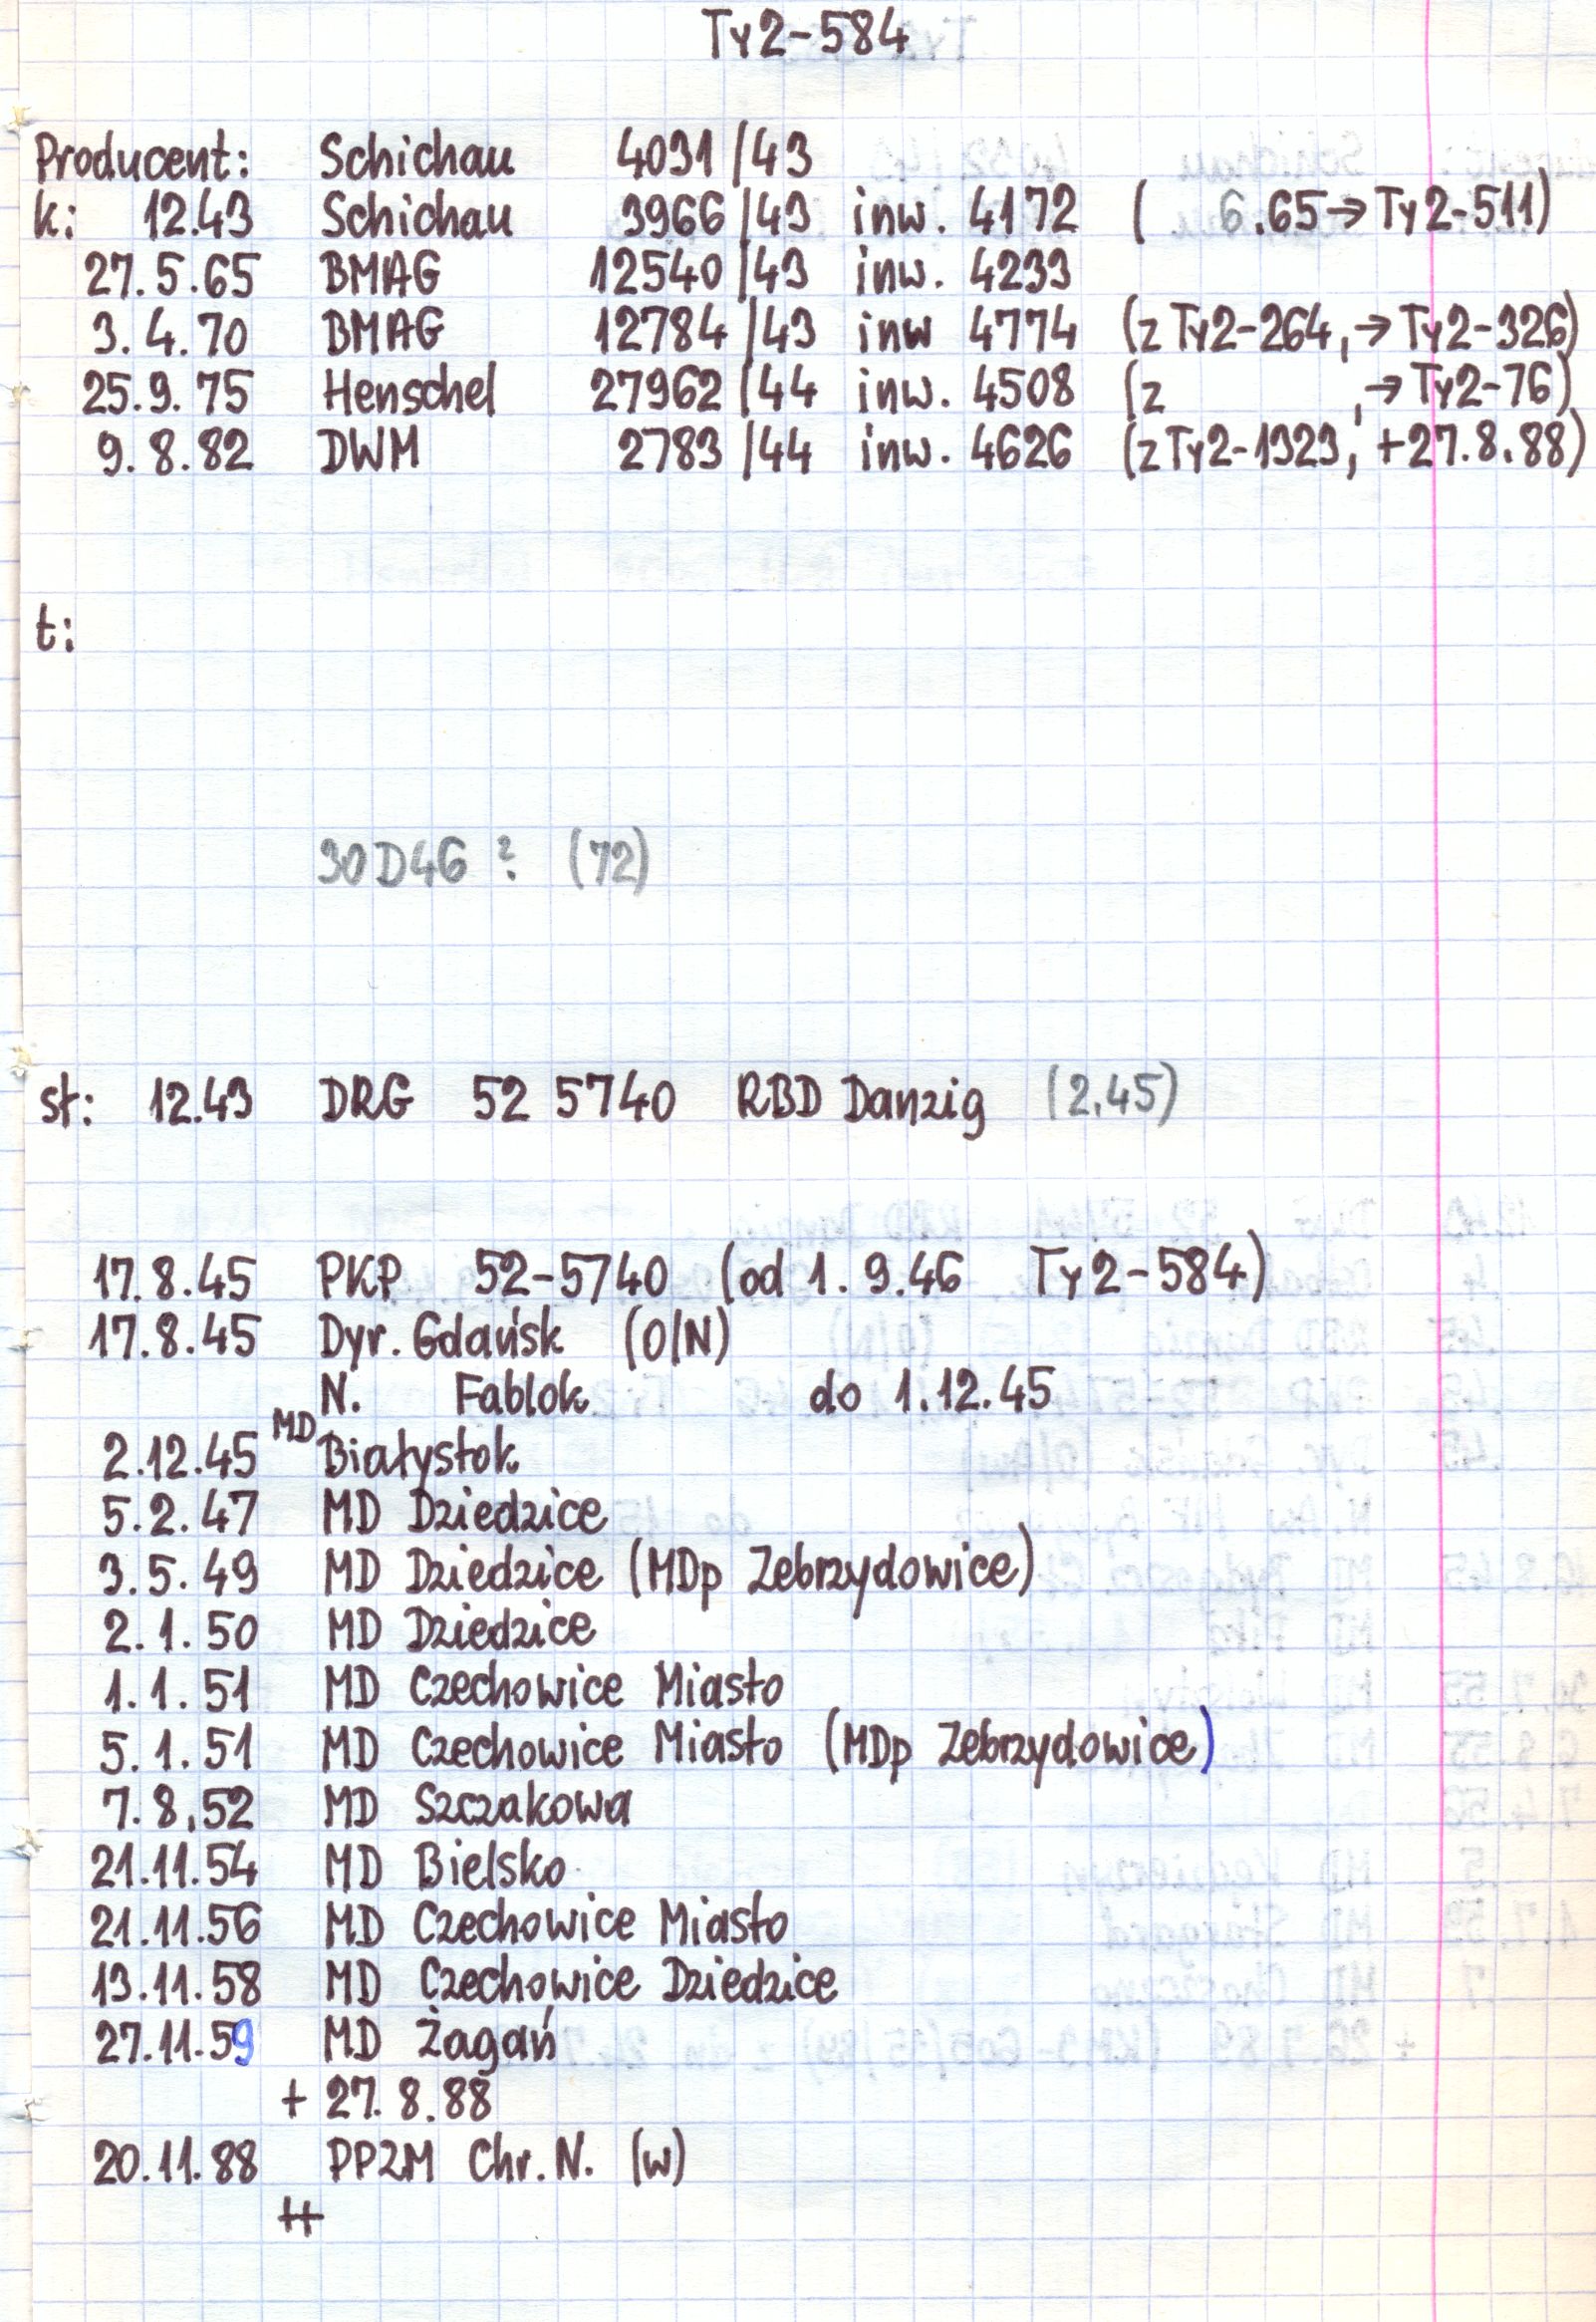 Ty2-584
Producent: Schichau 4031/43
k: 12.43 Schichau 3966/43 inw. 4172 ( 6.65→Ty2-511)
27.5.65 BMAG 12540/43 inw. 4233
3.4.70 BMAG 12784/43 inw 4774 (z Ty2-264, →Ty2-326)
25.9.75 Henschel 27962/44 inw. 4508 (z , →Ty2-76)
9.8.82 DWM 2783/44 inw. 4626 (z Ty2-1323, +27.8.88)
t:
30D46 ? (72)
st: 12.43 DRG 52 5740 RBD Danzig (2.45)
17.8.45 PKP 52-5740 (od 1.9.46 Ty2-584)
17.8.45 Dyr. Gdańsk (O/N)
N. Fablok do 1.12.45
2.12.45 MD Białystok
5.2.47 MD Dziedzice
3.5.49 MD Dziedzice (MDp Zebrzydowice)
2.1.50 MD Dziedzice
1.1.51 MD Czechowice Miasto
5.1.51 MD Czechowice Miasto (MDp Zebrzydowice)
7.8,52 MD Szczakowa
21.11.54 MD Bielsko
21.11.56 MD Czechowice Miasto
13.11.58 MD Czechowice Dziedzice
27.11.59 MD Żagań
+ 27.8.88
20.11.88 PPZM Chr. N. (w)
++